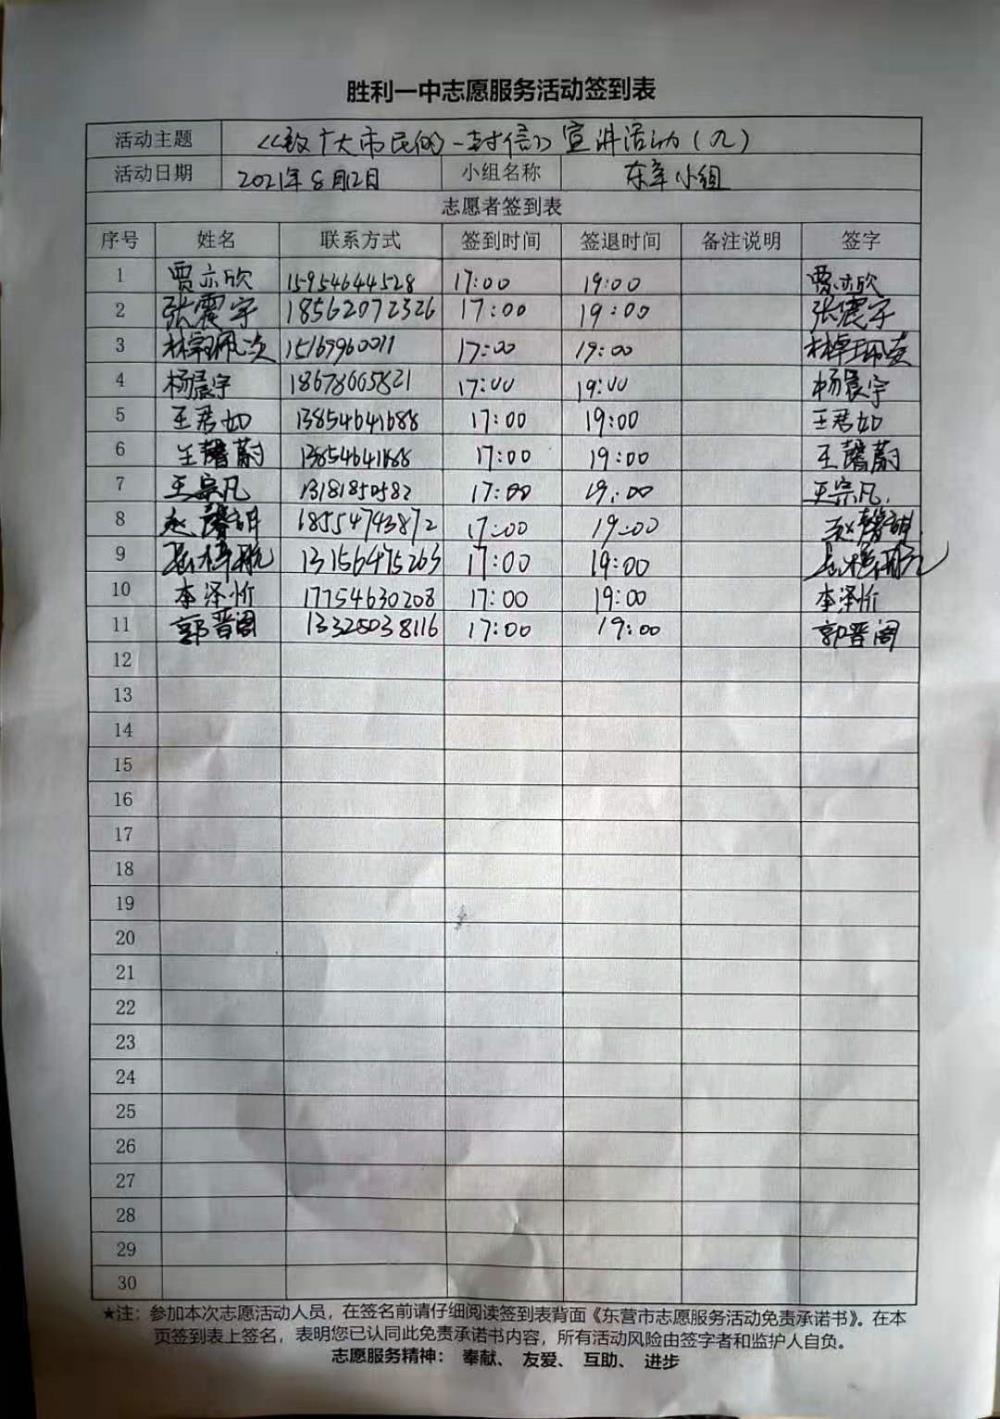 胜利一中志愿服务活动签到表
活动主题 《致广大市民的一封信》宣讲活动（九）
活动日期 2021年8月12日 小组名称 东辛小组
志愿者签到表
序号 姓名 联系方式 签到时间 签退时间 备注说明 签字
1 贾亦欣 15954644528 17:00 19:00 贾亦欣
2 张震宇 18562072326 17:00 19:00 张震宇
3 15169960011 17:00 19:00
4 杨晨宇 18678665821 17:00 19:00 杨晨宇
5 王君如 13854641688 17:00 19:00 王君如
6 王馨蔚 13854641688 17:00 19:00 王馨蔚
7 王宗凡 13181850582 17:00 19:00 王宗凡
8 赵馨 18554743872 17:00 19:00 赵馨
9 13156475263 17:00 19:00
10 李泽忻 17754630208 17:00 19:00 李泽忻
11 郭晋阁 13325038116 17:00 19:00 郭晋阁
12
13
14
15
16
17
18
19
20
21
22
23
24
25
26
27
28
29
30
★注：参加本次志愿活动人员，在签名前请仔细阅读签到表背面《东营市志愿服务活动免责承诺书》。在本
页签到表上签名，表明您已认同此免责承诺书内容，所有活动风险由签字者和监护人自负。
志愿服务精神： 奉献、 友爱、 互助、 进步